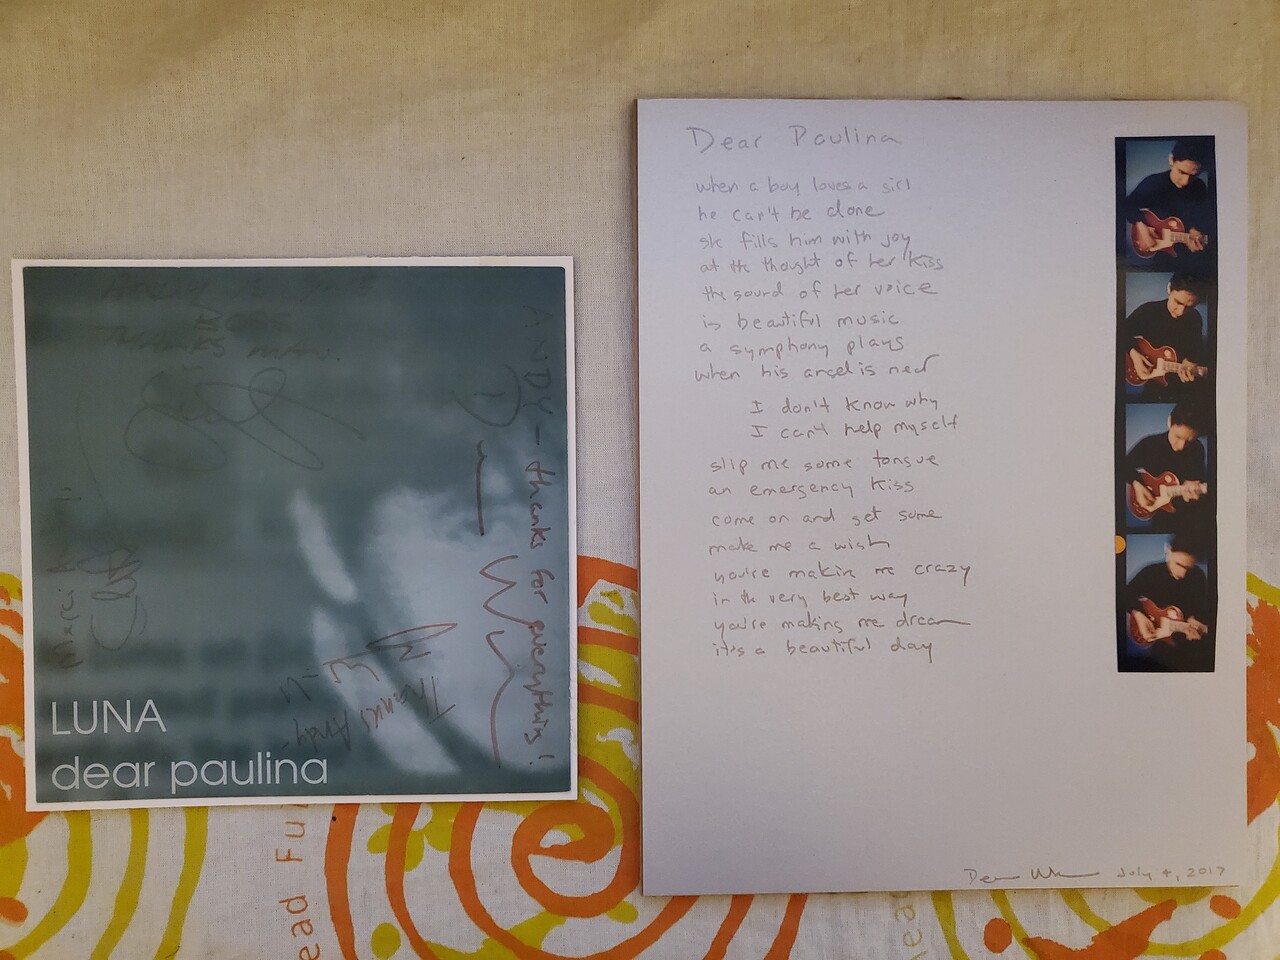 ANDY
THANKS MAN.
ANDY - thanks for everything!
Thanks Andy-
Merci
LUNA
dear paulina
Dear Paulina
when a boy loves a girl
he can't be alone
she fills him with joy
at the thought of her kiss
the sound of her voice
is beautiful music
a symphony plays
when his angel is near
I don't know why
I can't help myself
slip me some tongue
an emergency kiss
come on and get some
make me a wish
you're making me crazy
in the very best way
you're making me dream
it's a beautiful day
Dean July 4, 2017
ead Fu
ead